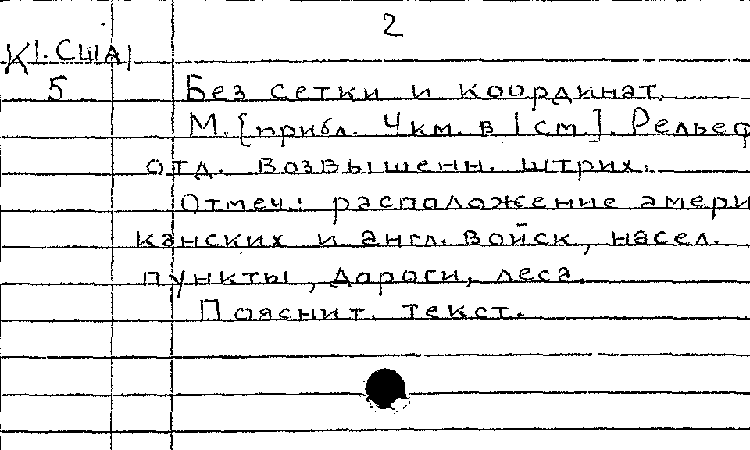 2
К 1. США
5 Без сетки и координат.
М. [прибл. 4 км. в 1 см]. Рельеф
отд. возвышенн. штрих.
Отмеч.: расположение амери
канских и англ. войск, насел.
пункты, дороги, леса.
Пояснит. текст.